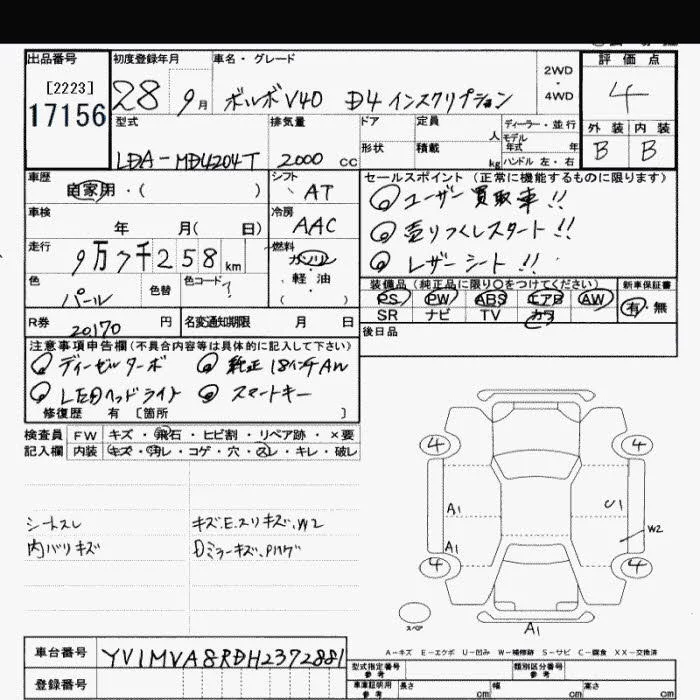 出品番号 初度登録年月 車名・グレード 評価点
[2223]
17156
28 9月 ボルボV40 D4 インスクリプション
2WD
4WD
4
型式 排気量 ドア 定員 人 ディーラー・並行
モデル年式 年
外装 内装
B B
LDA-MD4204T 2000 cc
形状 積載 kg ハンドル 左・右
車歴 シフト セールスポイント (正常に機能するものに限ります)
自家用・( ) AT
ユーザー買取車!!
車検 冷房
年 月( 日) AAC
売りつくしスタート!!
走行 燃料
9万7千258km ガソリン
レザーシート!!
色 色替 色コード 軽油
パール ? ( )
装備品(純正品に限り○をつけてください) 新車保証書
PS PW ABS エアB AW 有・無
SR ナビ TV カワ
R券 20170 円 名変通知期限 月 日
後日品
注意事項申告欄(不具合内容等は具体的に記入して下さい)
ディーゼルターボ 純正18インチAW
LEDヘッドライト スマートキー
修復歴 有 [箇所 ]
検査員 FW キズ・飛石・ヒビ割・リペア跡・×要
記入欄 内装 キズ・汚レ・コゲ・穴・スレ・キレ・破レ
シートスレ キズ、E、スリキズ、W2
内バリキズ Dミラーキズ、
4 4
A1 U1
W2
A1
4 4
スペア
A1
A-キズ E-エクボ U-凹み W-補修跡 S-サビ C-腐食 XX-交換済
車台番号 YV1MVA8RDH2372881
登録番号
型式指定番号 参考 類別区分番号 参考
車庫証明用 参考 長さ cm 幅 cm 高さ cm